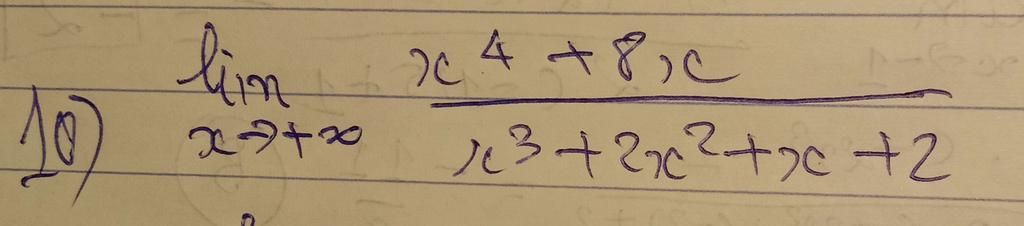 10) lim x→+∞ x⁴ + 8x / x³ + 2x² + x + 2